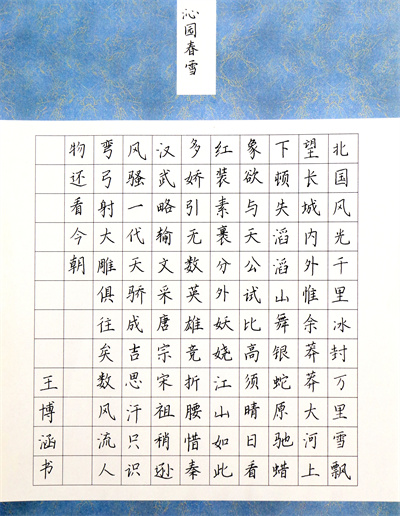 沁园春雪
北国风光千里冰封万里雪飘
望长城内外惟余莽莽大河上
下顿失滔滔山舞银蛇原驰蜡
象欲与天公试比高须晴日看
红装素裹分外妖娆江山如此
多娇引无数英雄竞折腰惜秦
汉武略输文采唐宗宋祖稍逊
风骚一代天骄成吉思汗只识
弯弓射大雕俱往矣数风流人
物还看今朝
王博涵书